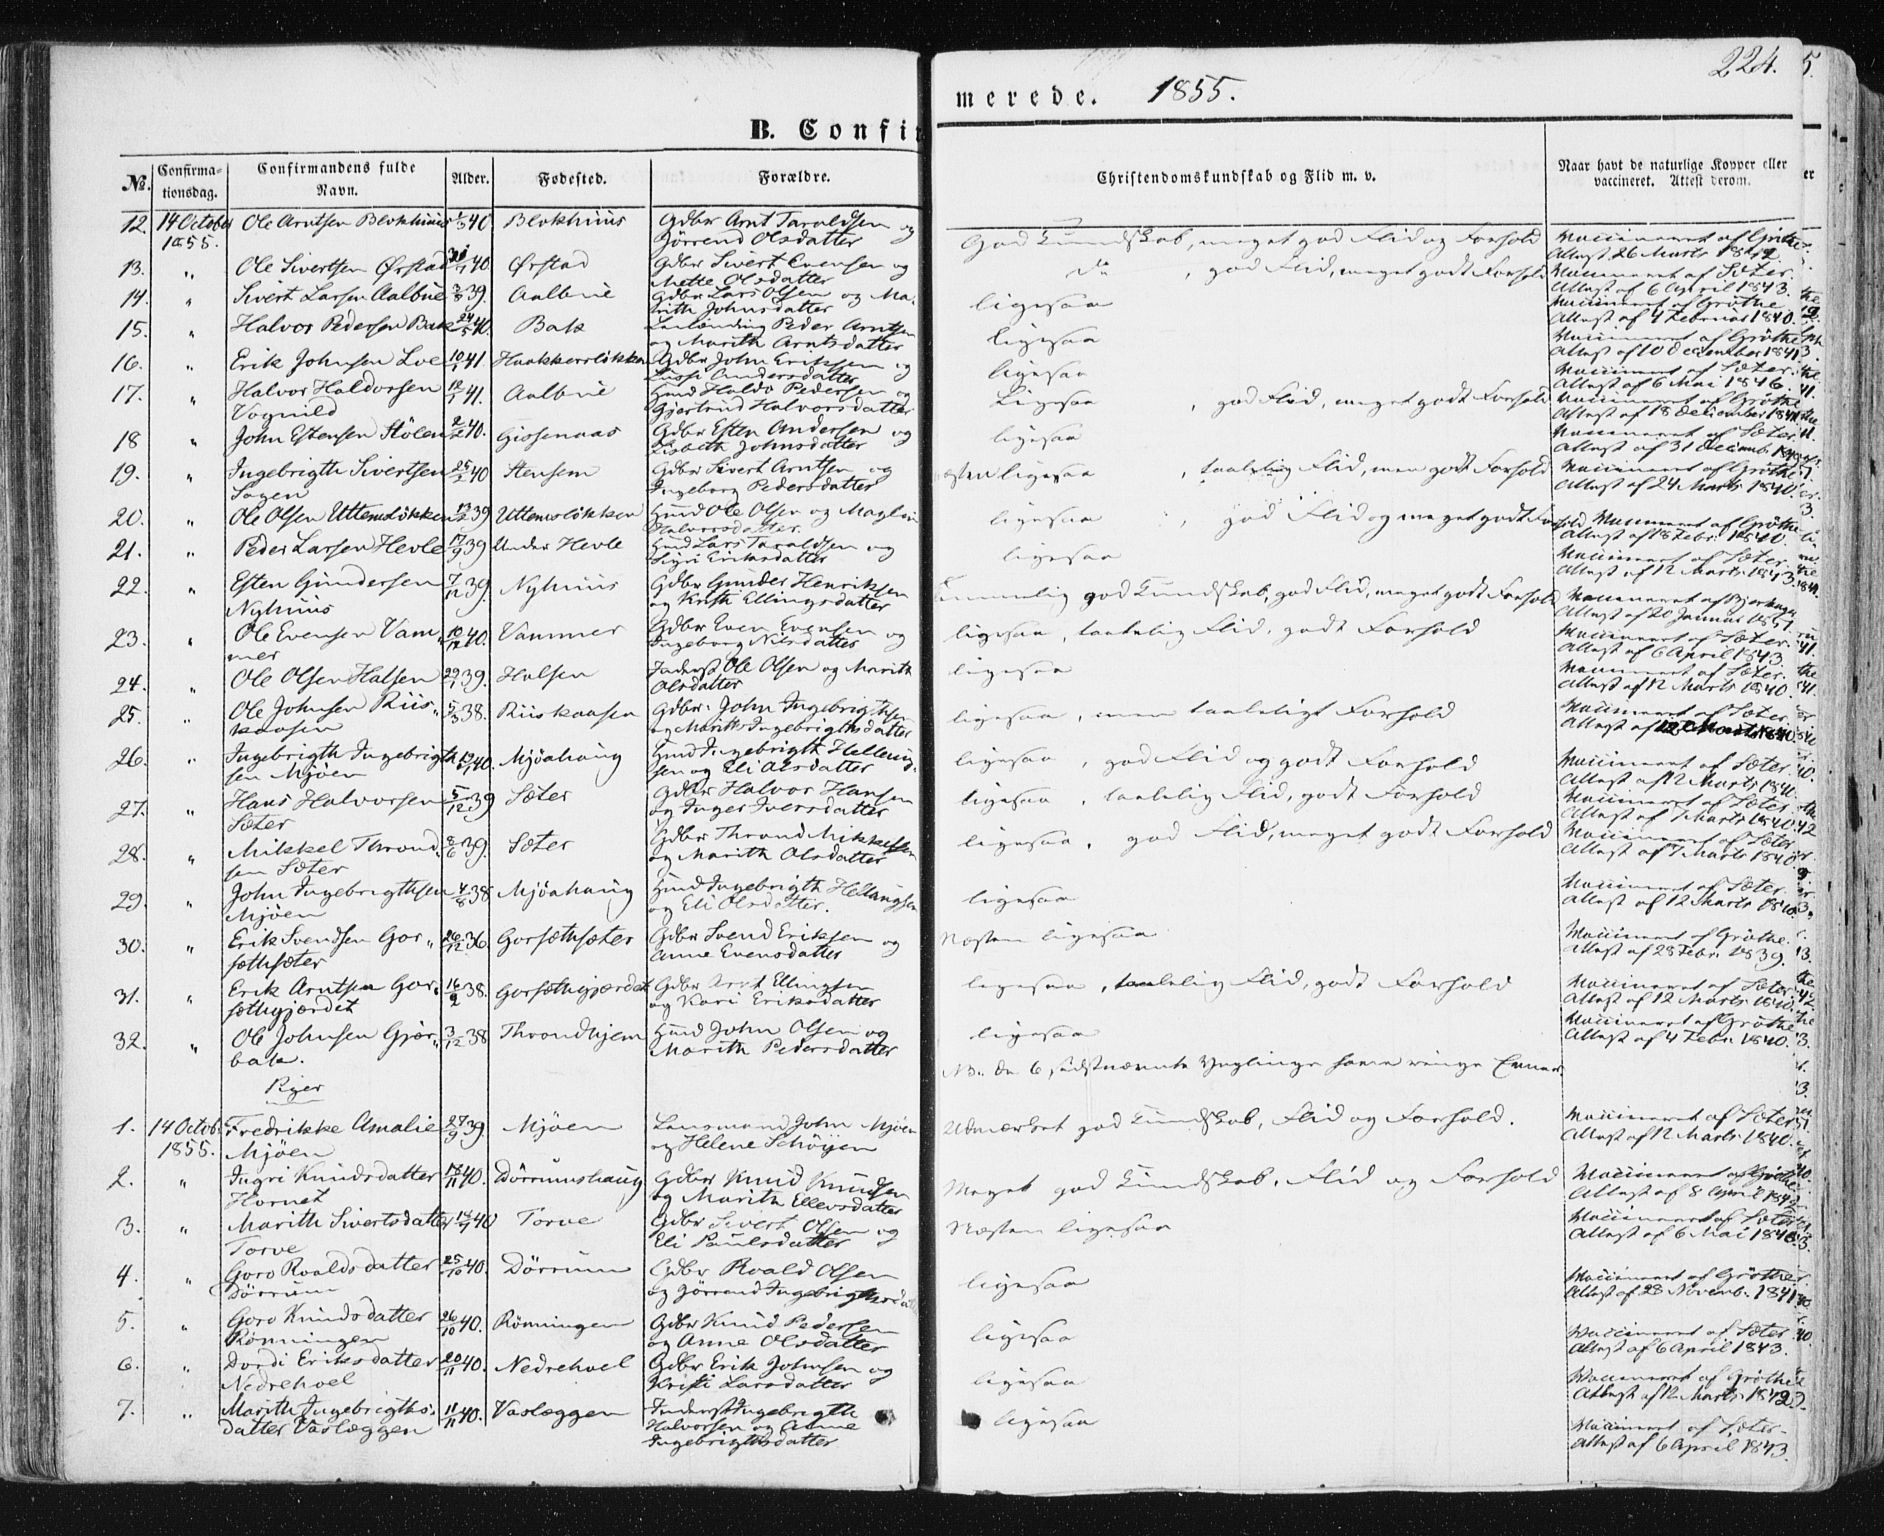 224.
B. Confirmerede. 1855.
No.
Confirmationsdag.
Confirmandens fulde Navn.
Alder.
Fødested.
Forældre.
Christendomskundskab og Flid m. v.
Naar havt de naturlige Kopper eller vaccineret. Attest derom.
12. 14 October 1855. Ole Arntsen Blokhuus 40 Blokhuus Gdbr Arnt Taraldsen og Jörrend Olsdatter God Kundskab, meget god Flid og Forhold Vaccineret af Gröthe Attest 26 Marts
13. " Ole Sivertsen Ørstad 40. Ørstad Gdbr Sivert Evensen og Mette Olsdatter Do, god Flid, meget godt Forhold Vaccineret af Sæter Attest af 6 April 1843.
14. " Sivert Larsen Aalbue 39. Aalbue Gdbr Lars Olsen og Marith Johnsdatter ligesaa Vaccineret af Gröthe Attest af 4 Februar 1840.
15. " Halvor Pedersen Bak 24/5 40. Bak Peder Arntsen og Marith Arntsdatter ligesaa Vaccineret af Gröthe Attest af 10 December 1841
16. " Erik Johnsen Loe 41 Haakkersløkken Gdbr John Eriksen og Lussi Andersdatter ligesaa Vaccineret af Sæter. Attest af 6 Mai 1846.
17. " Halvor Haldorsen Vognild 41. Aalbue Huusmd Haldo Pedersen og Gjertrud Halvorsdatter Ligesaa, god Flid, meget godt Forhold Vaccineret af Gröthe Attest af 18 December
18 " John Estensen Stölen 40. Giosenaas Gdbr Esten Andersen og Lisbeth Johnsdatter ligesaa Vaccineret af Sæter. Attest af 31 Decemb.
19. " Ingebrigth Sivertsen Sagen 25/2 40 Stensem Gdbr Sivert Arntsen og Ingeborg Pedersdatter næsten ligesaa, taalelig Flid, men godt Forhold Vaccineret af Gröthe Attest af 24 Marts 1840.
20. " Ole Olsen Uttemsløkken 39 Uttemsløkken Huusmd Ole Olsen og Magli Halvorsdatter. ligesaa, god Flid og meget godt Forhold Vaccineret af Gröthe Attest af 18 Febr.
21. " Peder Larsen Hevle 17/9 39 Under Hevle Huusmd Lars Taraldsen og Sigri Eriksdatter ligesaa Vaccineret af Sæter. Attest af 12 Marts 1843.
22. " Esten Gundersen Nyhuus 7/12 39. Nyhuus Gdbr Gunder Henriksen og Kristi Ellingsdatter Temmelig god Kundskab, god Flid, meget godt Forhold Attest af 20 Januar 1851.
23. " Ole Evensen Vammer 40. Vammer Gdbr Even Evensen og Ingeborg Nilsdatter ligesaa, taalelig Flid, godt Forhold Vaccineret af Sæter. Attest af 6 April 1843.
24. " Ole Olsen Halsen 39. Halsen Inderst Ole Olsen og Marith Olsdatter ligesaa Vaccineret af Sæter. Attest af 12 Marts 1840.
25. " Ole Johnsen Riiskaasen 5/3 38. Riiskaasen Gdbr. John Ingebrigthsen og Marith Ingebrigthsdatter ligesaa, men taaleligt Forhold Vaccineret af Sæter. Attest af 12 Marts 1840.
26. " Ingebrigth Ingebrigthsen Mjöen 40. Mjöahaug Huusmd Ingebrigth Hellengsen og Eli Olsdatter ligesaa, god Flid og godt Forhold Vaccineret af Sæter. Attest af 12 Marts
27. " Hans Halvorsen Sæter 5/12 39 Sæter Gdbr Halvor Hansen og Inger Iversdatter ligesaa, taalelig Flid, godt Forhold Vaccineret af Sæter Attest af 7 Marts 1840.
28. " Mikkel Throndsen Sæter 39. Sæter Gdbr Thrond Mikkelsen og Marith Olsdatter ligesaa, god Flid, meget godt Forhold Vaccineret af Sæter Attest af 7 Marts 1840.
29. " John Ingebrigthsen Mjöen 4/8 38 Mjöahaug Huusmd Ingebrigth Hellengsen og Eli Olsdatter. ligesaa Vaccineret af Sæter. Attest af 12 Marts 1840.
30. " Erik Svendsen Gorsæthsæter 26/12 36. Gorsæthsæter Gdbr Svend Eriksen og Anne Evensdatter Næsten ligesaa Vaccineret af Gröthe. Attest af 28 Febr. 1839.
31. " Erik Arntsen Gorsæthgjærdet 16/2 38. Gorsæthgjærdet Gdbr Arnt Ellingsen og Kari Eriksdatter ligesaa, taalelig Flid, godt Forhold Vaccineret af Sæter. Attest af 12 Marts 1840.
32. " Ole Johnsen Gjörbak. 3/12 38 Throndhjem Huusmd John Olsen og Marith Pedersdatter ligesaa Vaccineret af Gröthe Attest af 4 Febr. 1840.
NB. De 6 sidstnævnte Ynglinge have ringe Evner.
Piger
1. 14 Octob. 1855. Fredrikke Amalie Mjöen 27/9 39. Mjöen Lensmand John Mjöen og Helene Schöyen Udmærket god Kundskab, Flid og Forhold. Vaccineret af Sæter Attest af 12 Marts 1840.
2. " Ingri Knudsdatter Hornet 40. Dörrumshaug Gdbr Knud Knudsen og Marith Ellevsdatter Meget god Kundskab, Flid og Forhold Vaccineret af Gröthe Attest af 8 April
3. " Marith Sivertsdatter Torve 40 Torve Gdbr Sivert Olsen og Eli Paulsdatter Næsten ligesaa Vaccineret af Sæter Attest af 6 Mai
4. " Goro Roaldsdatter Dörrum 25/10 40. Dörrum Gdbr Roald Olsen og Jörrend Ingebrigthsdat ligesaa Vaccineret af Gröthe Attest af 28 Novemb. 1841
5. " Goro Knudsdatter Rönningen 26/10 40. Rönningen Gdbr Knud Pedersen og Anne Olsdatter ligesaa Vaccineret af Sæter Attest af 6 April 1843.
6. " Dordi Eriksdatter Nedrehoel 20/11 40. Nedrehoel Gdbr Erik Johnsen og Kristi Larsdatter ligesaa Vaccineret af Gröthe Attest af 12 Marts 1842
7. " Marith Ingebrigthsdatter Vaslæggen 11/11 40. Vaslæggen Inderst Ingebrigth Halvorsen og Anne Ingebrigthsdatter ligesaa Vaccineret af Sæter. Attest af 6 April 1843.